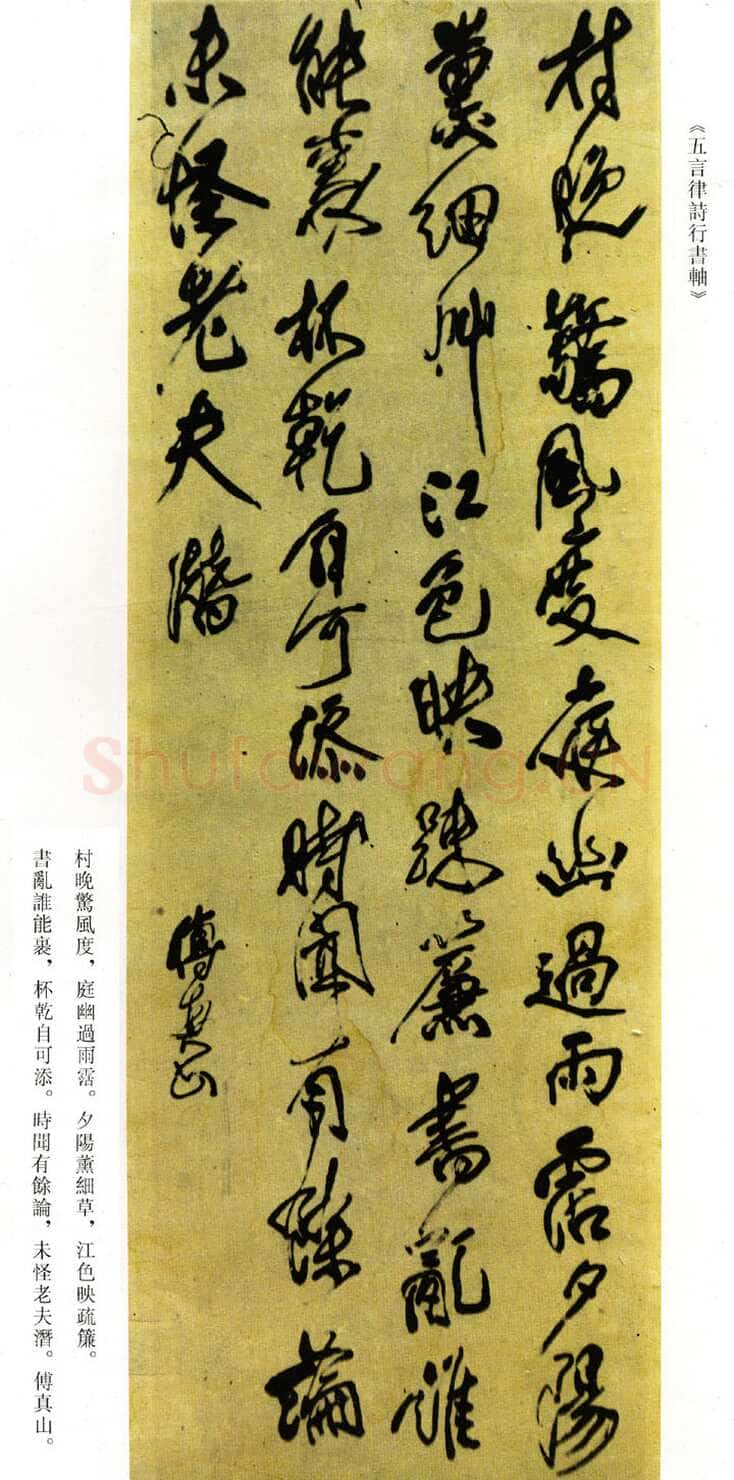 《五言律詩行書軸》
村晚驚風度庭幽過雨霑夕陽
薰細艸江色映疎簾書亂誰
能裹杯乾自可添時聞有餘論
未怪老夫潛
傅真山
村晚驚風度，庭幽過雨霑。夕陽薰細草，江色映疏簾。
書亂誰能裹，杯乾自可添。時聞有餘論，未怪老夫潛。傅真山。